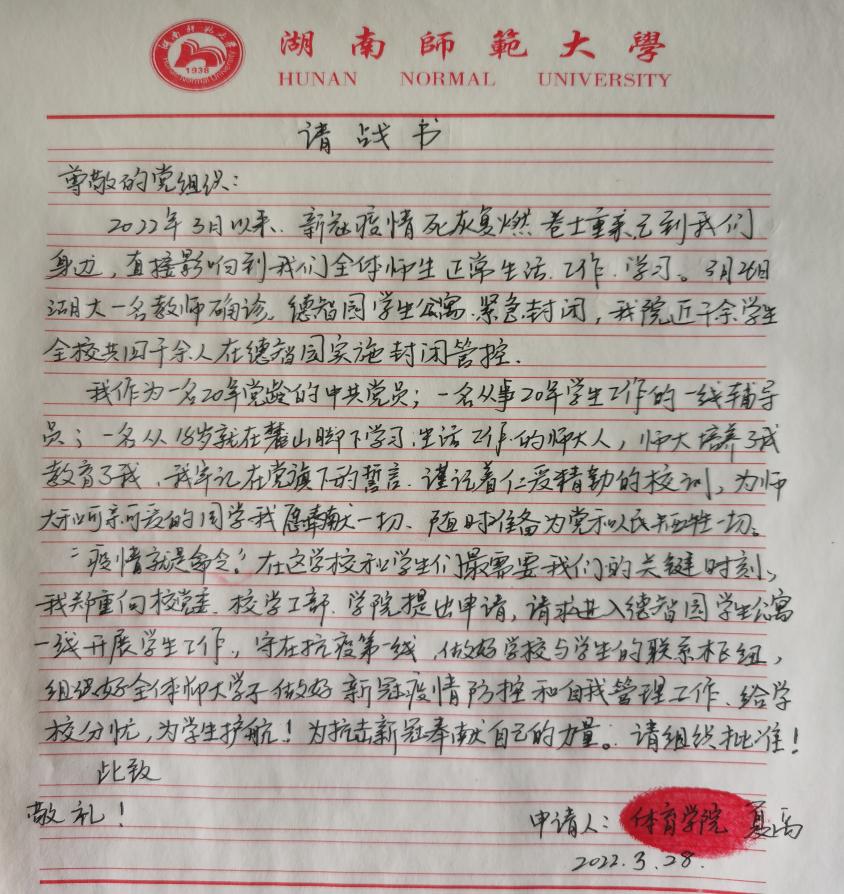 湖南師範大學
HUNAN NORMAL UNIVERSITY
1938
请战书
尊敬的党组织：
2022年3月以来、新冠疫情死灰复燃 卷土重来已到我们
身边，直接影响到我们全体师生正常生活、工作、学习。3月26日
湖大一名教师确诊。德智园学生公寓紧急封闭，我院近千余学生
全校共四千余人在德智园实施封闭管控.
我作为一名20年党龄的中共党员；一名从事20年学生工作的一线辅导
员；一名从18岁就在麓山脚下学习、生活、工作的师大人，师大培养了我
教育了我、我牢记在党旗下的誓言、谨记着仁爱精勤的校训，为师
大和可亲可爱的同学我愿奉献一切、随时准备为党和人民牺牲一切。
“疫情就是命令！在这学校和学生们最需要我们的关键时刻、
我郑重向校党委、校学工部、学院提出申请，请求进入德智园学生公寓
一线开展学生工作，守在抗疫第一线、做好学校与学生的联系枢纽，
组织好全体师大学子做好新冠疫情防控和自我管理工作、给学
校分忧，为学生护航！为抗击新冠奉献自己的力量。请组织批准！
此致
敬礼！
申请人：体育学院 夏禹
2022.3.28.